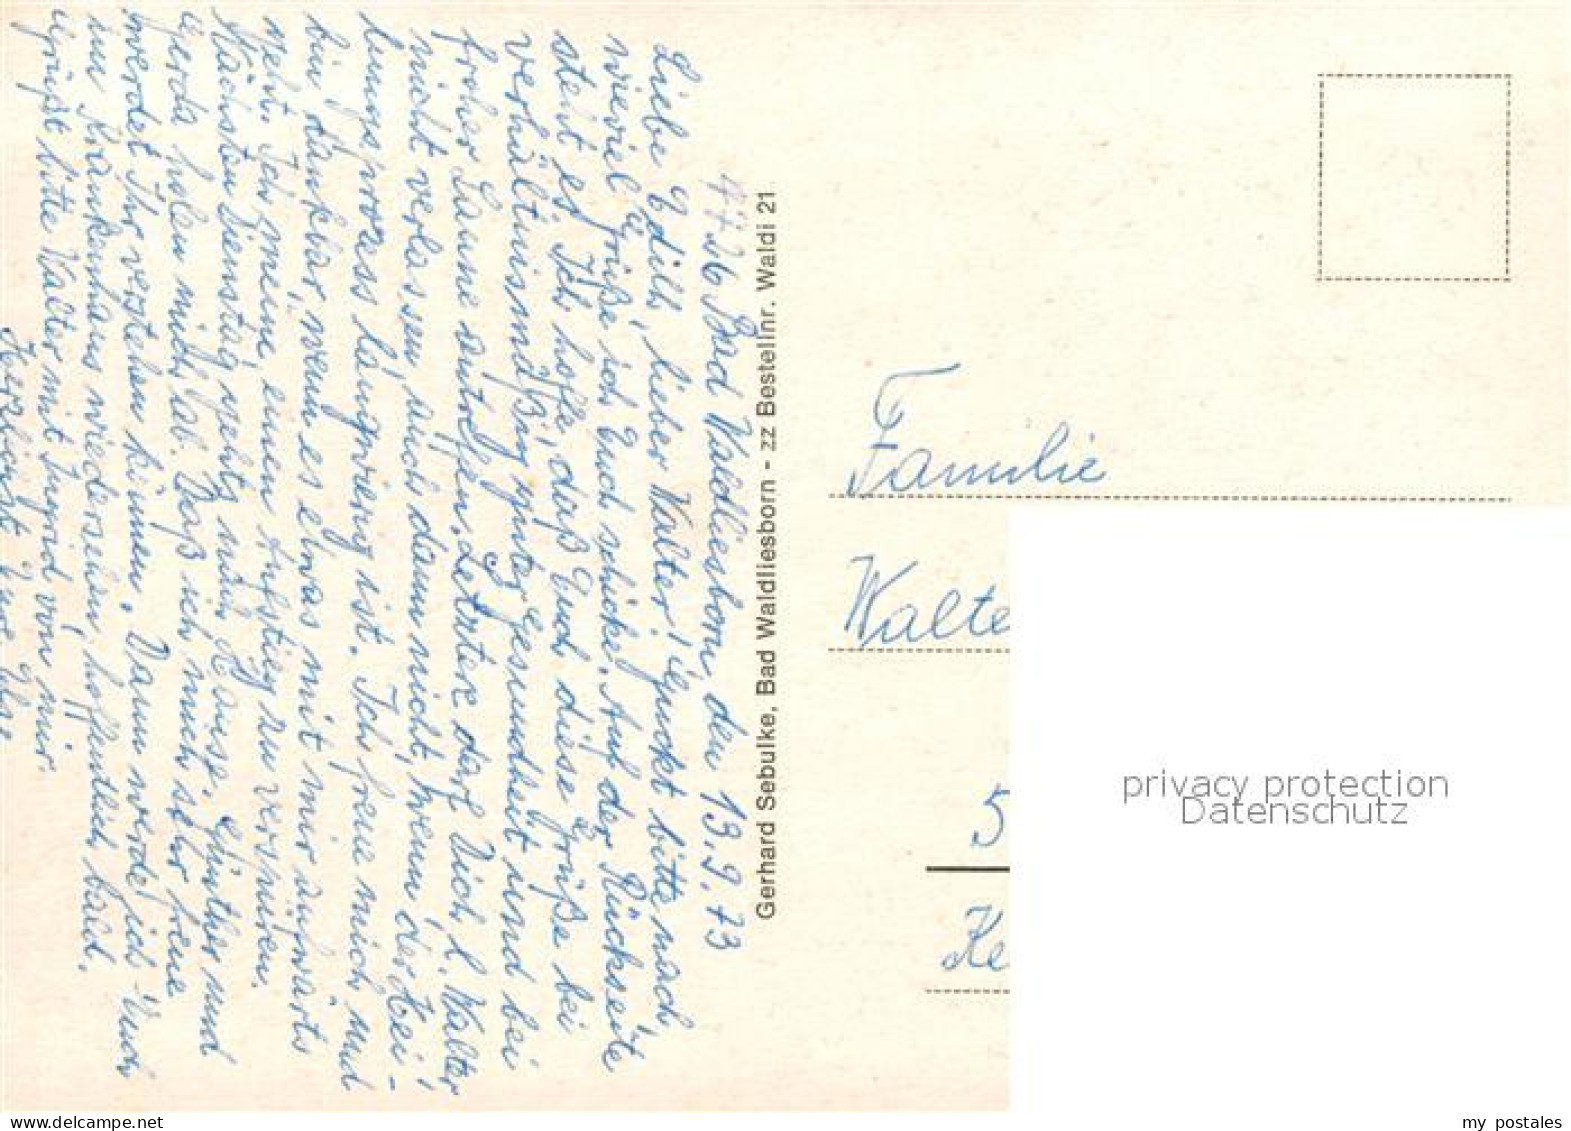 4786 Bad Waldliesborn, den 19.9.73
Liebe Edith, lieber Walter! Guckt bitte nach,
wieviel Grüße ich Euch schicke. Auf der Rückseite
steht es. Ich hoffe, daß Euch diese Grüße bei
verhältnismäßig guter Gesundheit und bei
froher Laune antreffen. Letztere darf Dich l. Walter
nicht verlassen, auch dann nicht, wenn der Hei-
lungsprozess langwierig ist. Ich freue mich und
bin dankbar, wenn es etwas mit mir aufwärts
geht. Ich meine, einen Aufstieg zu verspüren.
Nächsten Dienstag geht's nach Hause. Günther und
Gerda holen mich ab. Daß ich mich sehr freue
werdet Ihr verstehen können. Dann werde ich Euch
im Krankenhaus wiedersehen, hoffentlich bald.
Grüßt bitte Walter mit Ingrid von mir.
Herzlichst Eure Else
Gerhard Sebulke, Bad Waldliesborn - zz Bestellnr. Waldi 21
Familie
Walte
5
Ke
privacy protection
Datenschutz
www.delcampe.net
my_postales